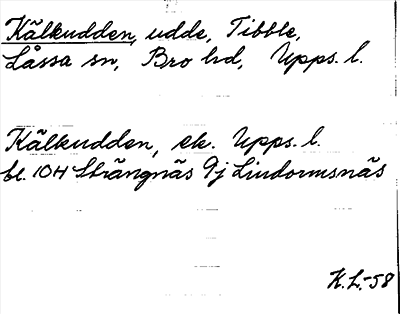 Kälkudden, udde, Tibble,
Låssa sn, Bro hd, Upps. l.
Kälkudden, ek. Upps. l.
bl. 10H Strängnäs 9j Lindormsnäs
K.L.-58